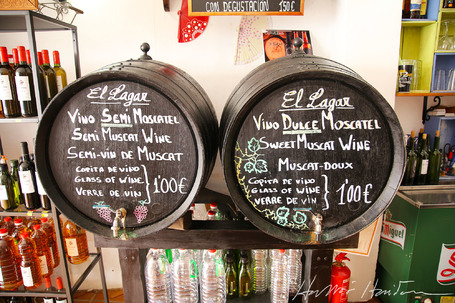 CON DEGUSTACION 1'50€
El Lagar
Vino Semi Moscatel
Semi Muscat Wine
Semi-vin de Muscat
Copita de vino
Glass of Wine
Verre de vino
1'00€
El Lagar
Vino Dulce Moscatel
Sweet Muscat Wine
Muscat-doux
Copita de vino
Glass of Wine
Verre de vino
1'00€